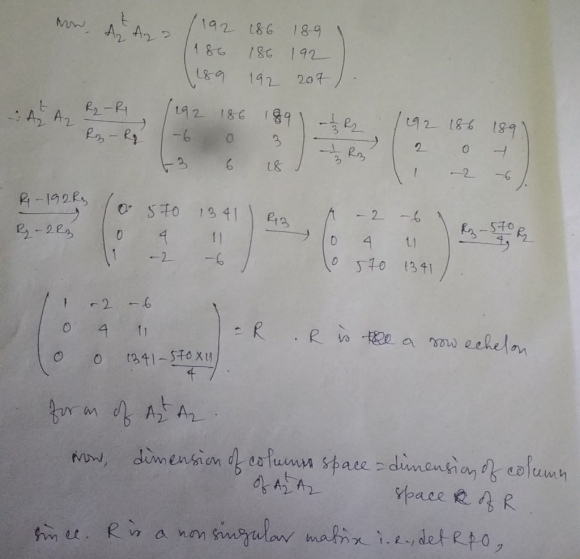 Now. A₂ᵗ A₂ = ( 192 186 189
186 186 192
189 192 207 ).
∴ A₂ᵗ A₂ R₂-R₁ R₃-R₁ → ( 192 186 189
-6 0 3
-3 6 18 ) -1/3 R₂ -1/3 R₃ → ( 192 186 189
2 0 -1
1 -2 -6 ).
R₁-192R₃ R₂-2R₃ → ( 0 570 1341
0 4 11
1 -2 -6 ) R₁₃ → ( 1 -2 -6
0 4 11
0 570 1341 ) R₃-570/4 R₂ →
( 1 -2 -6
0 4 11
0 0 1341-570×11/4 ) = R . R is a row echelon
form of A₂ᵗ A₂.
Now, dimension of column space of A₂ᵗ A₂ = dimension of column
space of R.
since. R is a non singular matrix i.e., det R≠0,